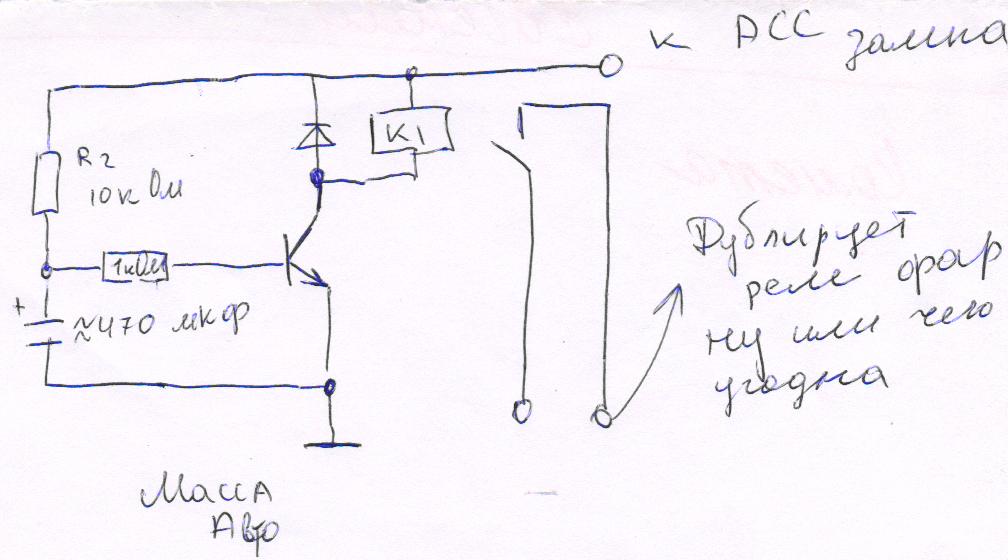 к АСС
замка
K1
R2
10к Ом
1кОм
+
≈470 мкф
Дублирует
реле фар
ну или чего
угодна
Масса
Авто